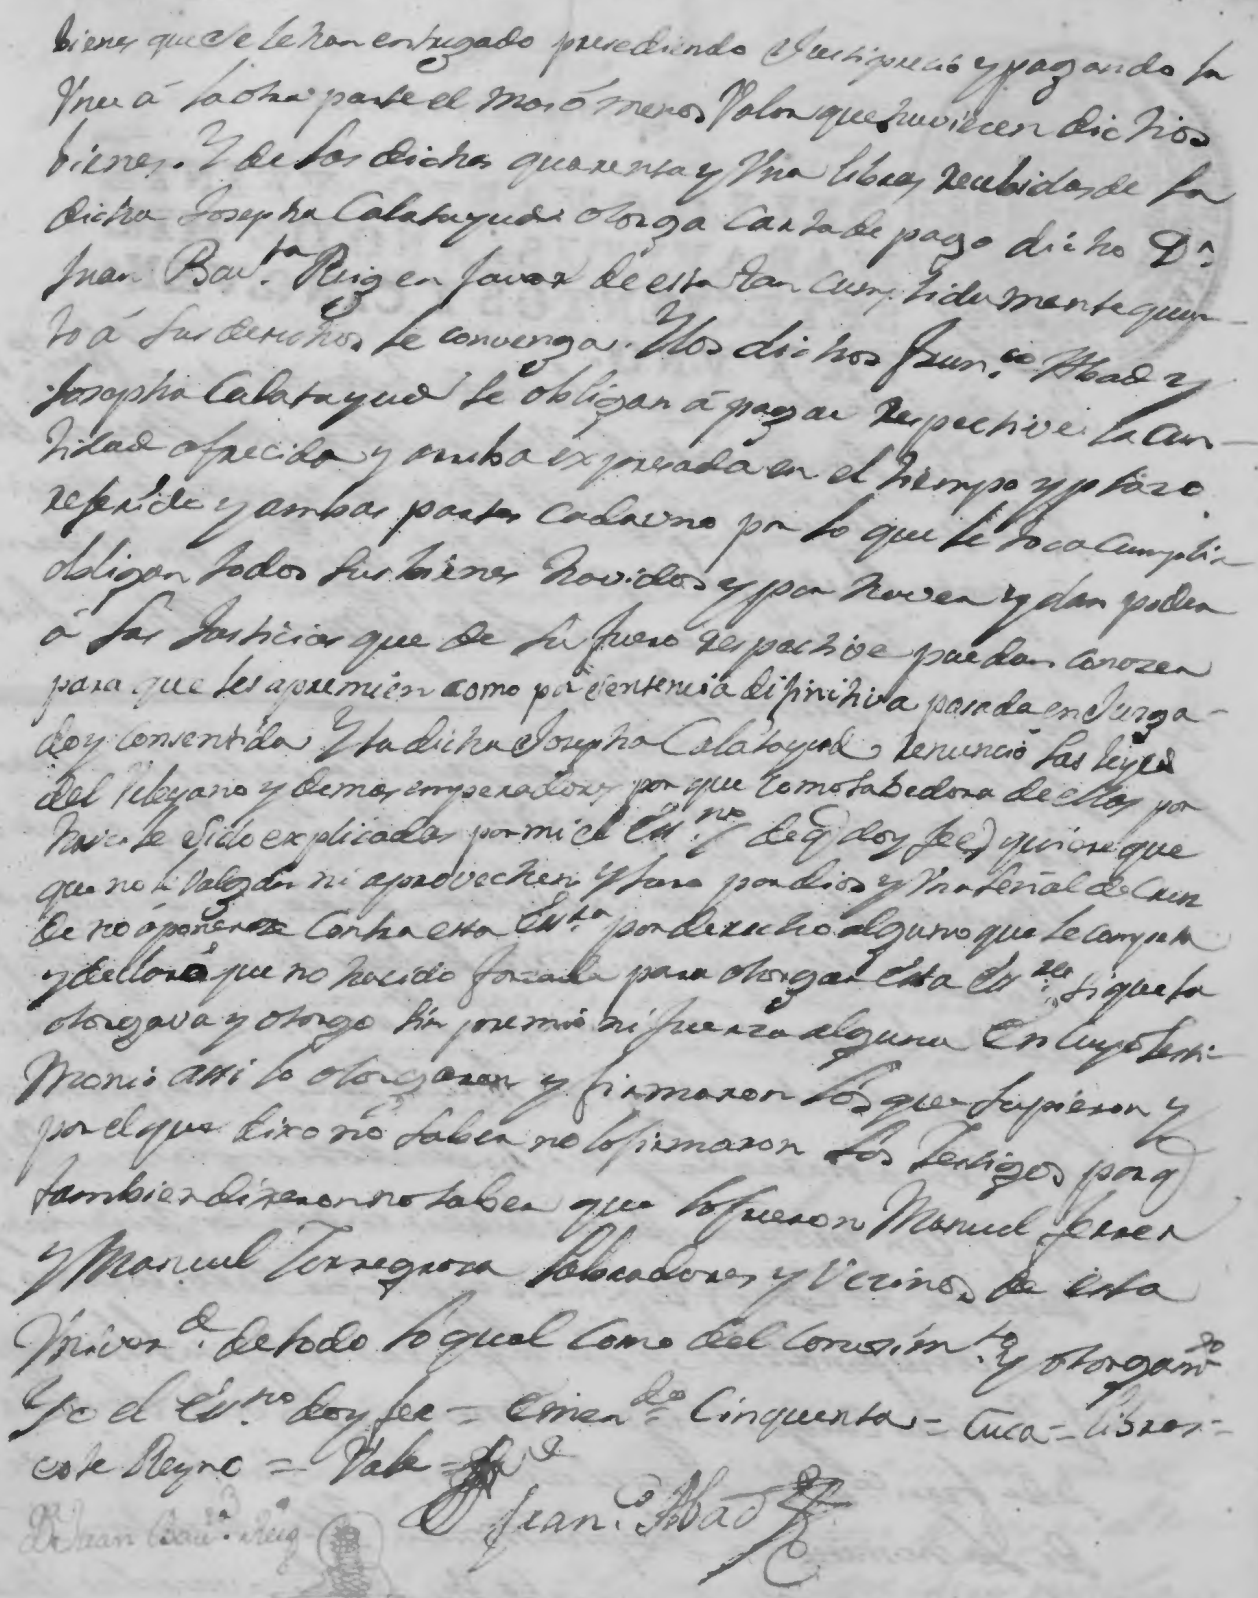 bienes que se le han entregado presediendo Justiprecio y pagando la
Una á la otra parte el mas ó menos Valor que huviesen dichos
bienes. Y de las dichas quarenta y Una libras recibidas de la
dicha Josepha Calatayud otorga Carta de pago dicho Dn.
Juan Bauta. Puig en favor de esta tan cumplidamente quan-
to á sus derechos le convenga. Y los dichos Franco. Abad y
Josepha Calatayud se obligan á pagar respective la can-
tidad ofrecida y arriba expresada en el tiempo y plazo
referido y ambas partes cada uno por lo que le toca cumplir
obligan todos sus bienes havidos y por haver y dan poder
á las Justicias que de su fuero respective puedan conozer
para que les apremien como por sentencia difinitiva pasada en Juzga-
do y consentida Y la dicha Josepha Calatayud renunció las leyes
del Veleyano y demas emperadores por que como sabedora de ellas por
haverle sido explicadas por mi el Essno. (de q doy fee) quiere que
que no le Valgan ni aprovechen y jura por dios y Una señal de Cruz
de no oponerse contra esta Essra. por derecho alguno que le competa
y declara que no ha sido forzada para otorgar esta Essra. si que la
otorgava y otorgo sin premio ni fuerza alguna En cuyo testi-
monio assi lo otorgaron y firmaron los que supieron y
por el que dixo no saber no lo firmaron los Testigos por q
tambien dixeron no saber que lo fueron Manuel Ferrer
y Manuel Torregrosa Labradores y Vezinos de esta
Univerd. de todo lo qual como del conozimto. y otorgamto
Yo el Essno. doy fee = Emendo = Cinquenta = Cuca = libras =
este Reyno = Vale =
Dr. Juan Baua. Puig
Franco. Abad